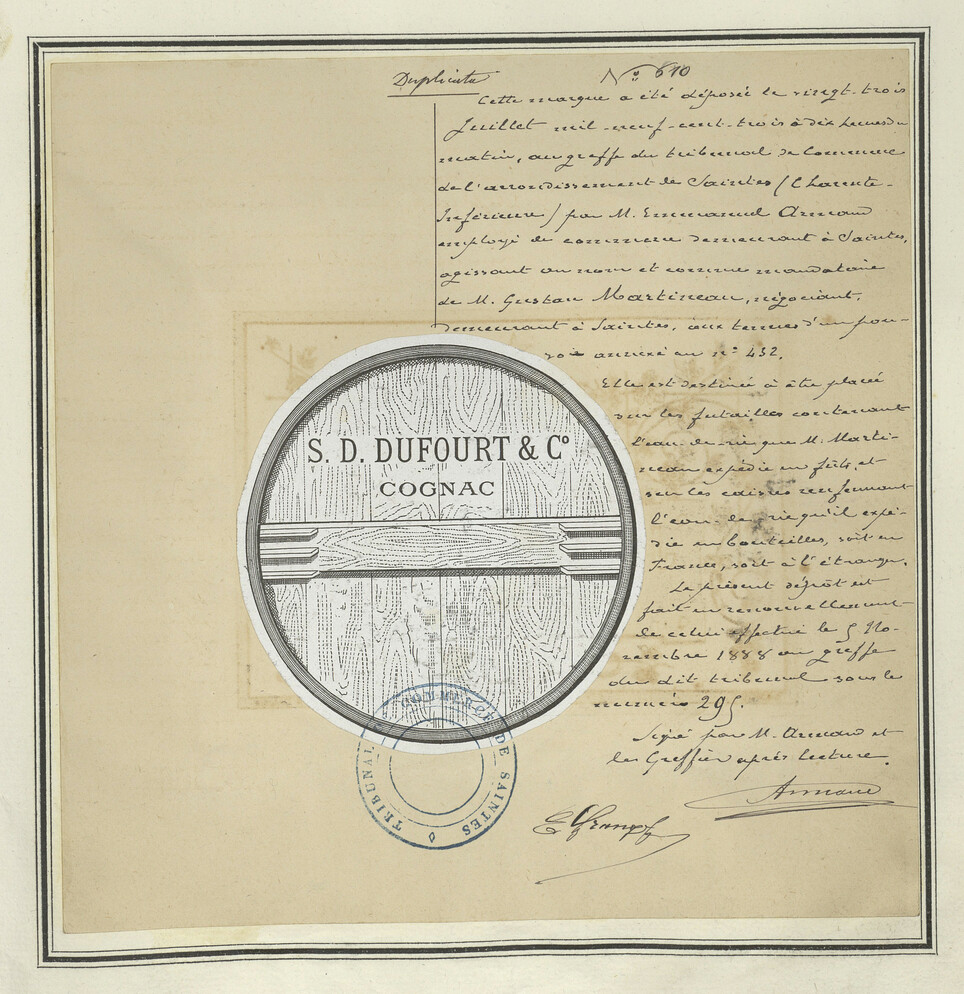 Duplicata
N° 610
Cette marque a été déposée le vingt-trois
Juillet mil-neuf-cent-trois à dix heures du
matin, au greffe du tribunal de Commerce
de l'arrondissement de Saintes (Charente-
Inférieure) par M. Emmanuel Armand
employé de commerce demeurant à Saintes,
agissant au nom et comme mandataire
de M. Gustave Martineau, négociant,
demeurant à Saintes, aux termes d'un pou-
voir annexé au n° 432.
Elle est destinée à être placée
sur les futailles contenant
l'eau-de-vie que M. Marti-
neau expédie en fûts, et
sur les caisses renfermant
l'eau-de-vie qu'il expé-
die en bouteilles, soit en
France, soit à l'étranger.
Le présent dépôt est
fait en renouvellement
de celui effectué le 5 No-
vembre 1888 au greffe
du dit tribunal sous le
numéro 295.
Signé par M. Armand et
le Greffier après lecture.
Armand
S. D. DUFOURT & Co
COGNAC
TRIBUNAL COMMERCE DE SAINTES